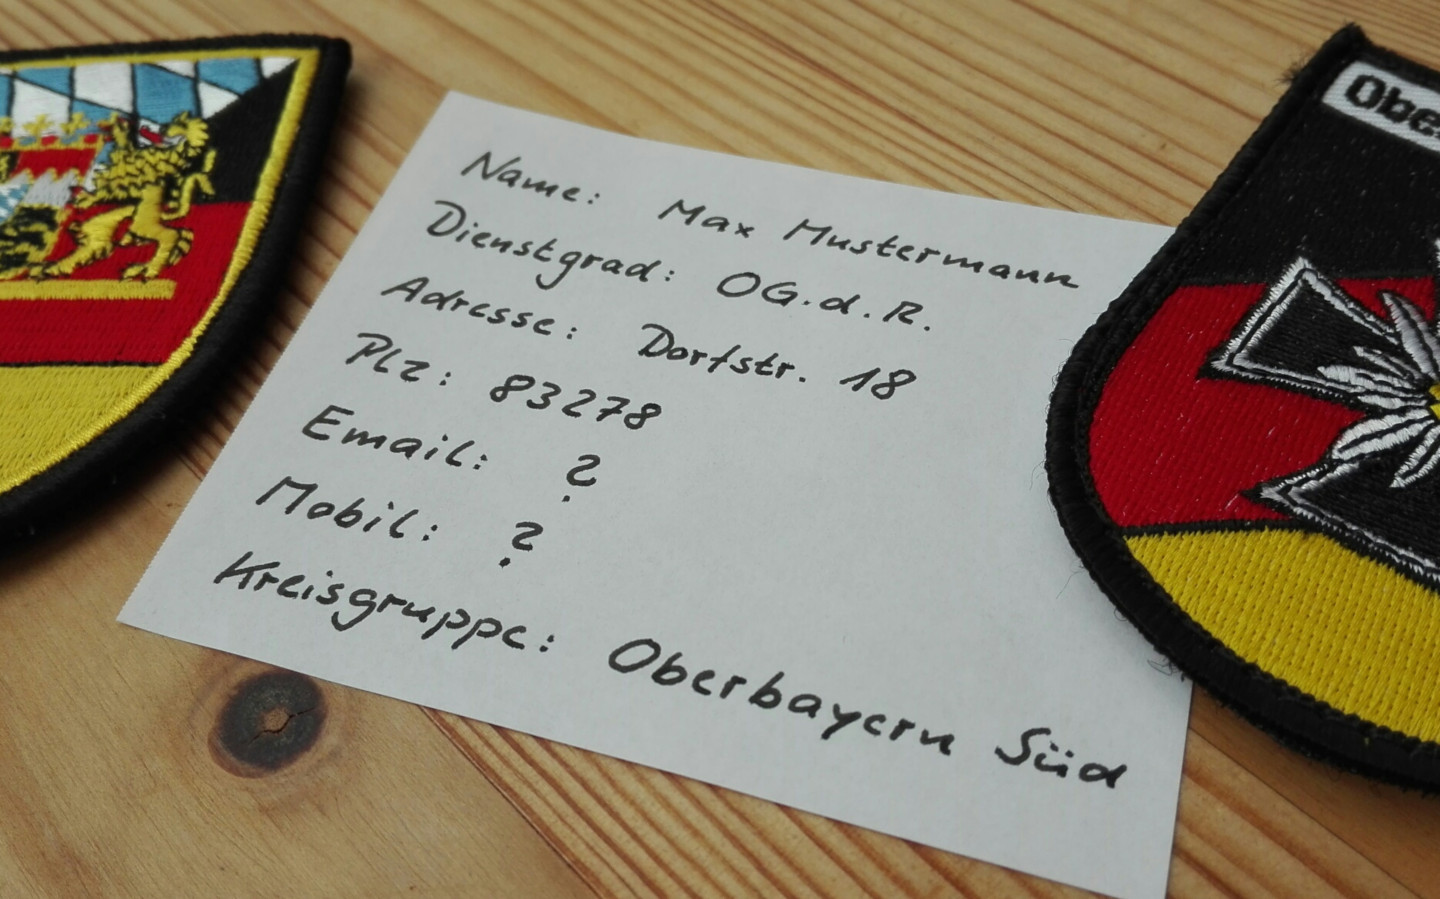 Name: Max Mustermann
Dienstgrad: OG.d.R.
Adresse: Dorfstr. 18
Plz: 83278
Email: ?
Mobil: ?
Kreisgruppe: Oberbayern Süd
Ober